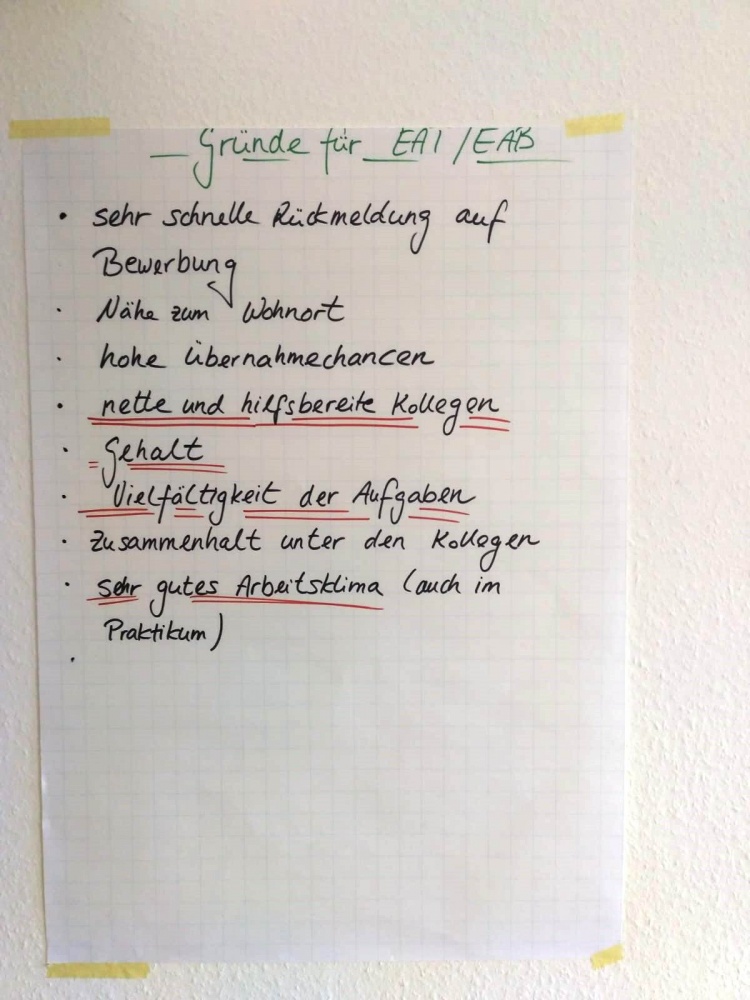 Gründe für EA1 / EAB
• sehr schnelle Rückmeldung auf
Bewerbung
• Nähe zum Wohnort
• hohe Übernahmechancen
• nette und hilfsbereite Kollegen
• Gehalt
• Vielfältigkeit der Aufgaben
• Zusammenhalt unter den Kollegen
• sehr gutes Arbeitsklima (auch im
Praktikum)
•